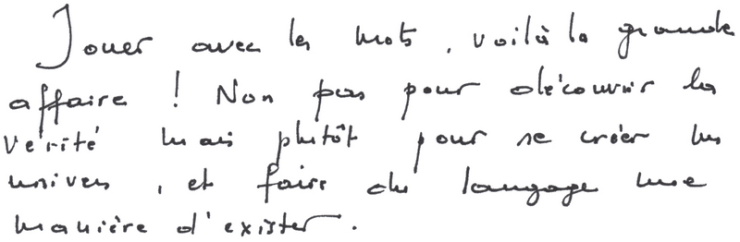 Jouer avec les mots, voilà la grande
affaire ! Non pas pour découvrir la
vérité mais plutôt pour se créer un
univers, et faire du langage une
manière d'exister.